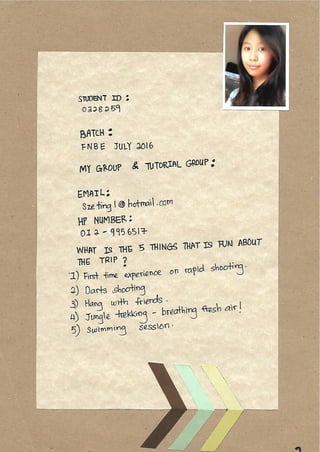 STUDENT ID :
0328259
BATCH :
FNBE JULY 2016
MY GROUP & TUTORIAL GROUP :
EMAIL :
Szeting1@hotmail.com
HP NUMBER :
012-9956517
WHAT IS THE 5 THINGS THAT IS FUN ABOUT
THE TRIP ?
1) First time experience on rapid shooting.
2) Darts shooting
3) Hang with friends.
4) Jungle trekking - breathing fresh air!
5) Swimming session.